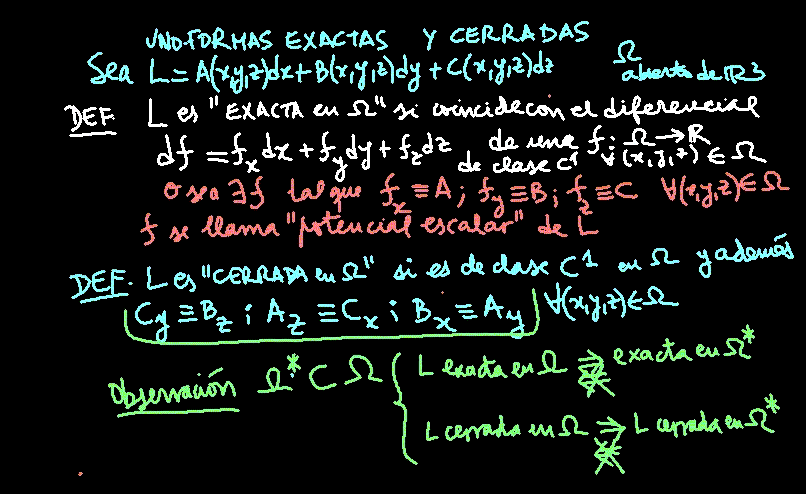 UNO-FORMAS EXACTAS Y CERRADAS
Sea L = A(x,y,z)dx + B(x,y,z)dy + C(x,y,z)dz Ω abierto de ℝ3
DEF. L es "EXACTA en Ω" si coincide con el diferencial
df = f_x dx + f_y dy + f_z dz de una f: Ω → ℝ
de clase C¹ ∀(x,y,z) ∈ Ω
o sea ∃f tal que f_x ≡ A ; f_y ≡ B ; f_z ≡ C ∀(x,y,z) ∈ Ω
f se llama "potencial escalar" de L
DEF. L es "CERRADA en Ω" si es de clase C¹ en Ω y además
C_y ≡ B_z ; A_z ≡ C_x ; B_x ≡ A_y ∀(x,y,z) ∈ Ω
Observación Ω* ⊂ Ω { L exacta en Ω ⇒ exacta en Ω*
L cerrada en Ω ⇒ L cerrada en Ω*